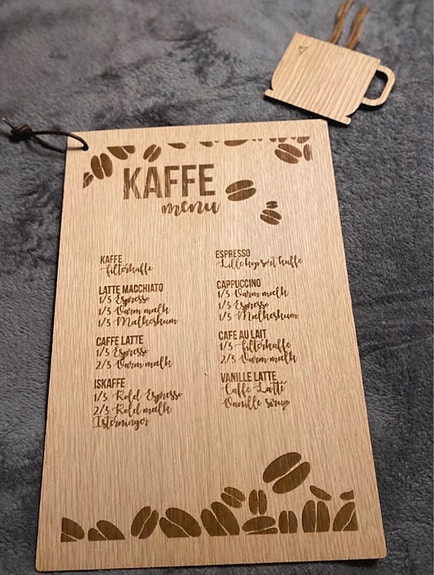 KAFFE
menu
KAFFE
Filterkaffe
LATTE MACCHIATO
1/3 Espresso
1/3 Varm mælk
1/3 Mælkeskum
CAFFE LATTE
1/3 Espresso
2/3 Varm mælk
ISKAFFE
1/3 Kold Espresso
2/3 Kold mælk
Isterninger
ESPRESSO
Lille kop sort kaffe
CAPPUCCINO
1/3 Varm mælk
1/3 Espresso
1/3 Mælkeskum
CAFE AU LAIT
1/3 Filterkaffe
2/3 Varm mælk
VANILLE LATTE
Caffe Latté
Vanille sirup